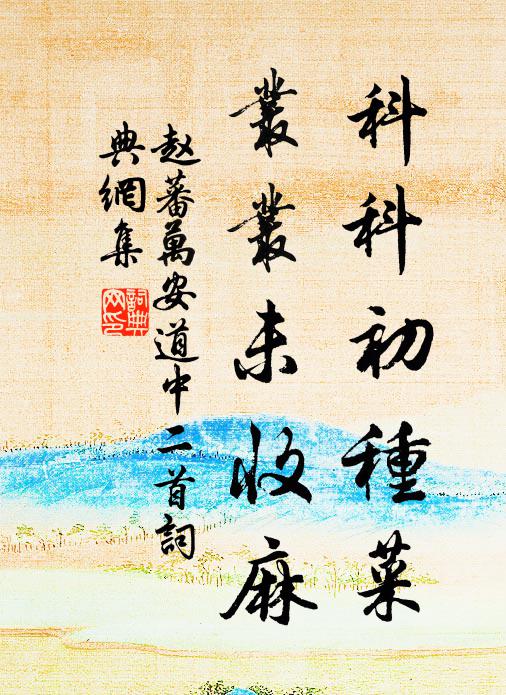 科科初種菜
叢叢未收麻
赵蕃萬安道中二首詞
典網集
詞典網印